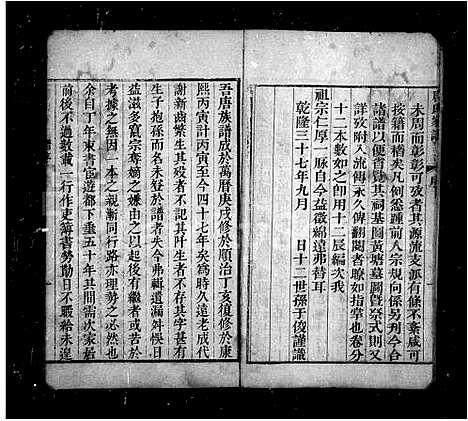 未周而彰彰可攷者其源流支派有條不紊咸可
按籍而稽矣凡例悉踵前人宗規向係另刊今合
諸譜以便省覽其祠基圖黃塘墓圖曁祭式則又
詳攷附入流傳永久俾翻閱者瞭如指掌也卷分
十二本數如之卽用十二辰編次我
祖宗仁厚一脉自今益徵綿遠弗替耳
乾隆三十七年九月 日十二世孫于俊謹識
吾唐族譜成於萬曆庚戌修於順治丁亥復修於康
熙丙寅計丙寅至今四十七年矣爲時久遠老成代
謝新齒繁生其歿者不記其阡生者不存其字甚有
生子抱孫而名未登於譜者失今弗輯遺漏舛悞日
益滋多冒宗奪嫡之嫌由之以起後有繼者或苦於
考據之無因一本之親漸同行路亦理勢之必然也
余自丁年束書宦遊都下垂五十年其間需次家居
前後不過數載一行作吏簿書勞勩日不暇給未遑